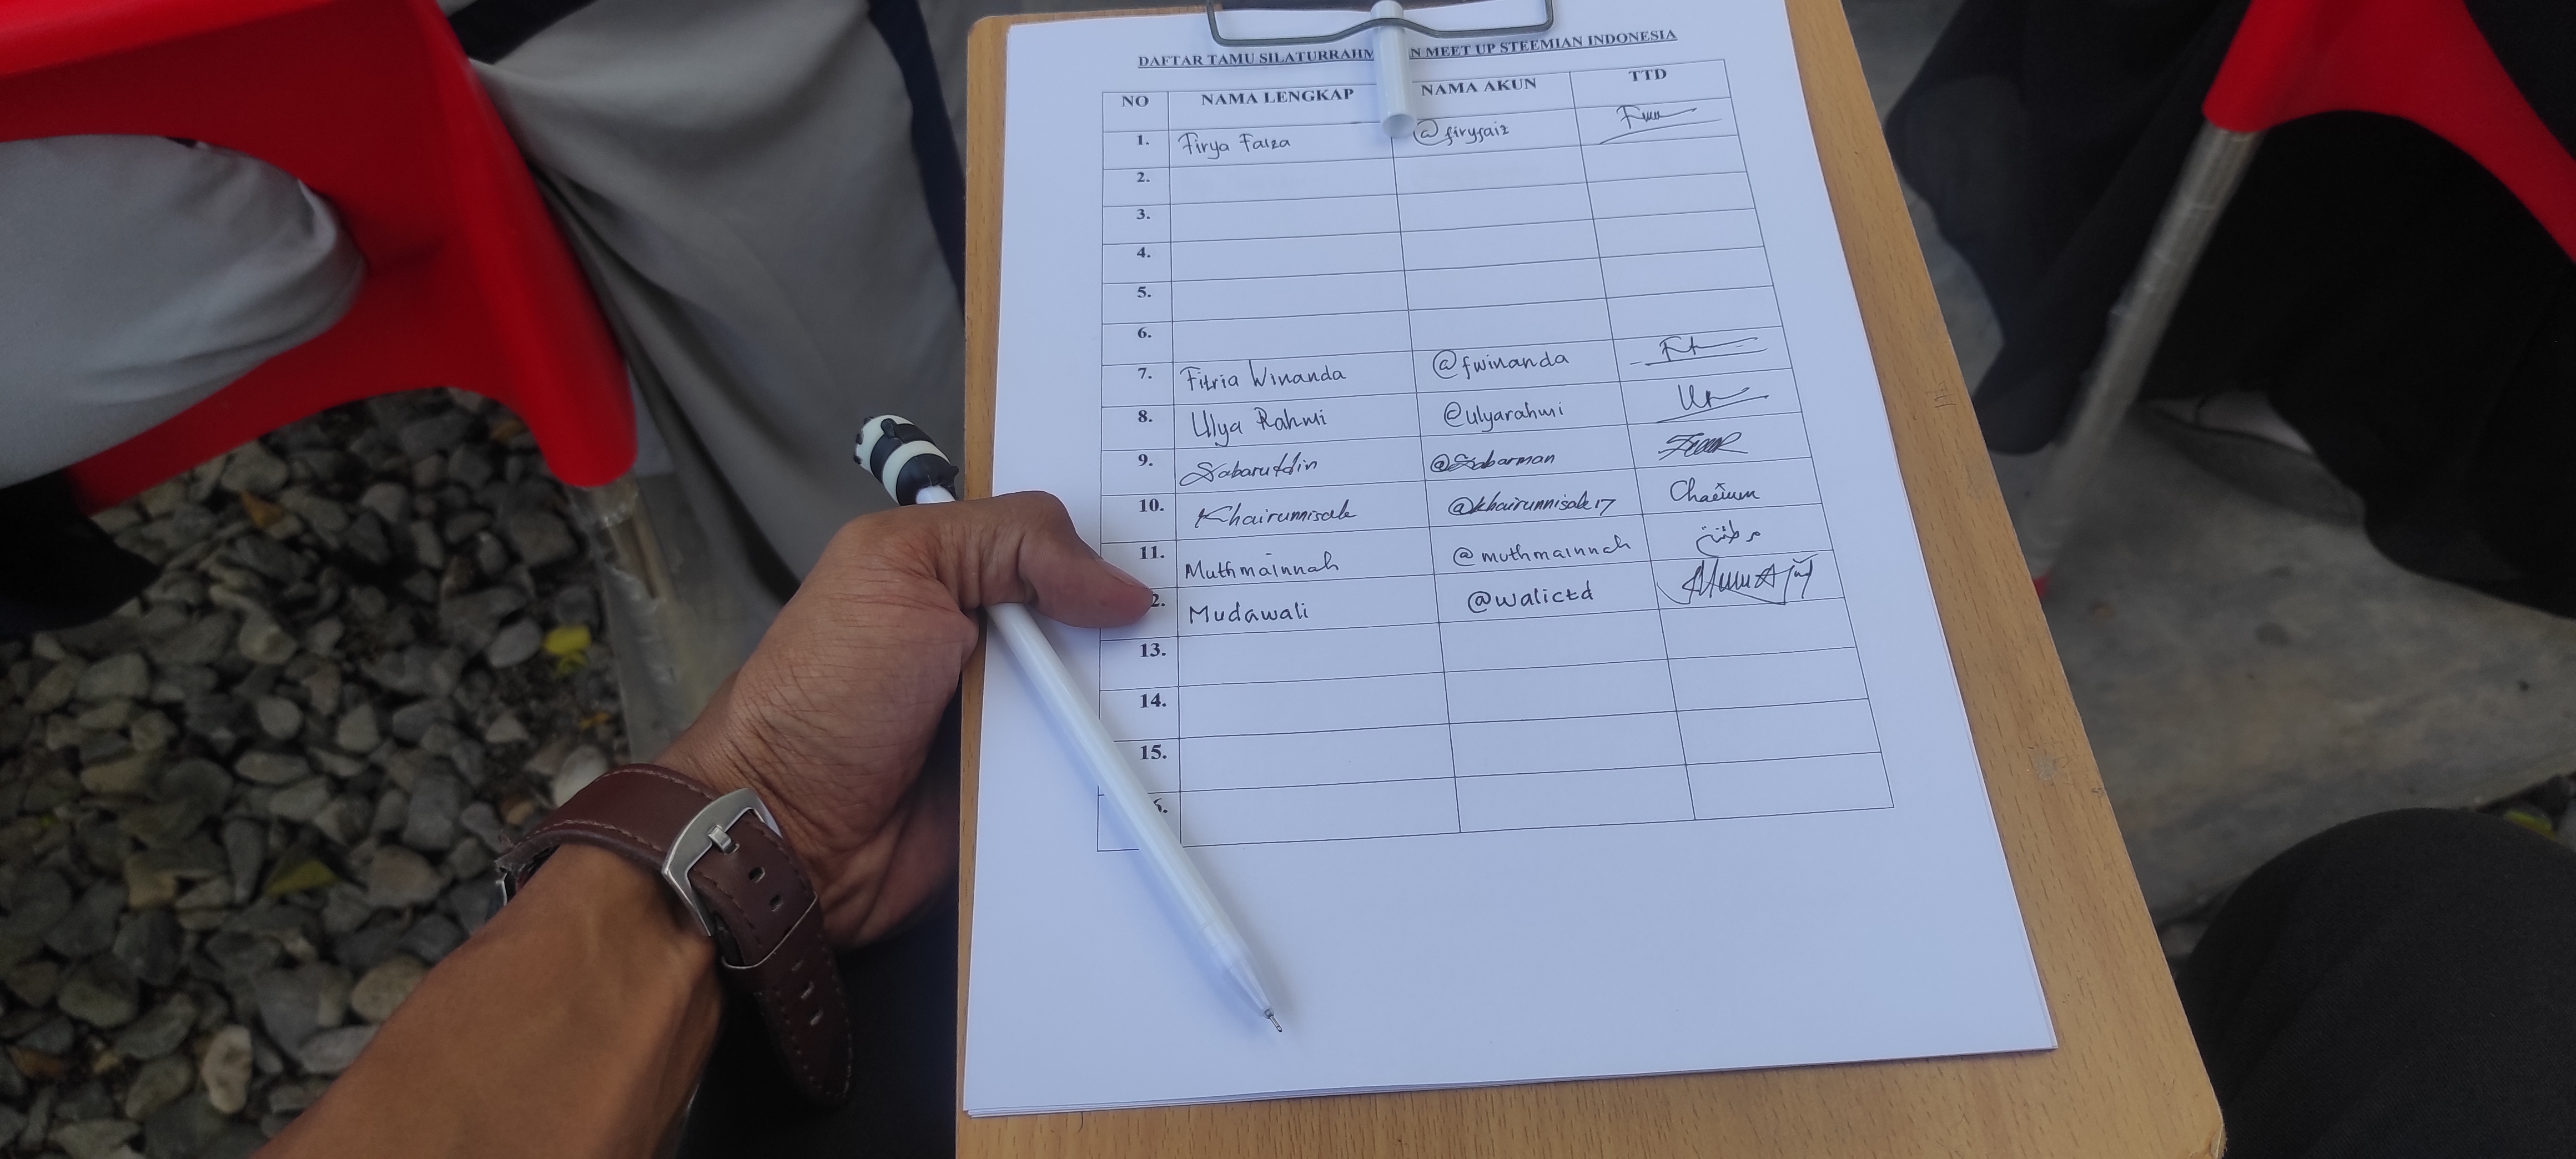 DAFTAR TAMU SILATURRAHM N MEET UP STEEMIAN INDONESIA
NO NAMA LENGKAP NAMA AKUN TTD
1. Firya Faiza @firyfaiz
2.
3.
4.
5.
6.
7. Fitria Winanda @fwinanda
8. Ulya Rahmi @ulyarahmi
9. Sabaruddin @Sabarman
10. Khairunnisak @khairunnisak17
11. Muthmainnah @muthmainnah
2. Mudawali @walictd
13.
14.
15.
6.